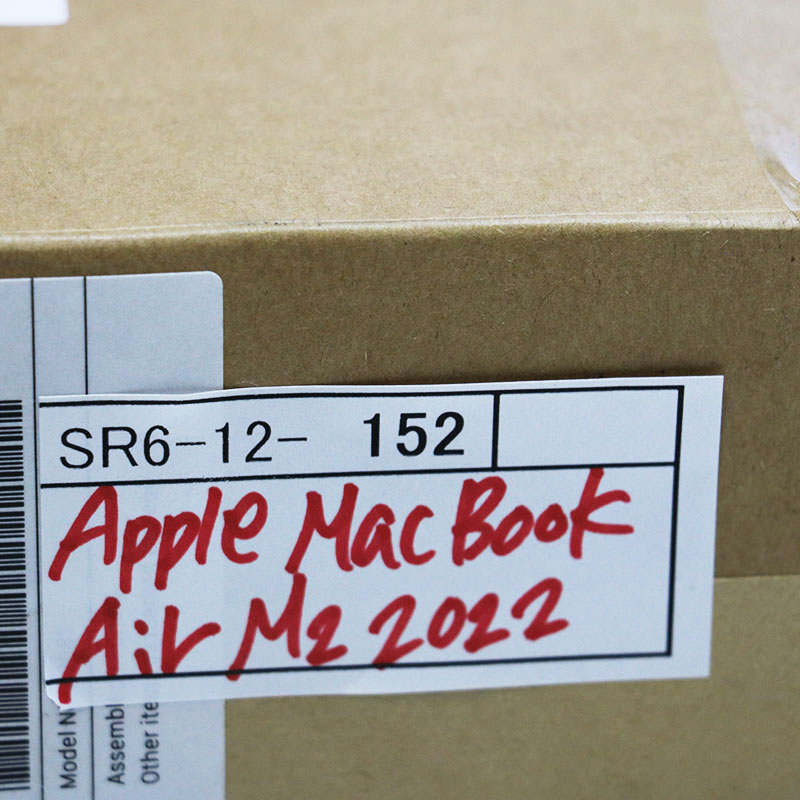 SR6-12- 152
Apple MacBook
Air M2 2022
Model N
Assembl
Other ite